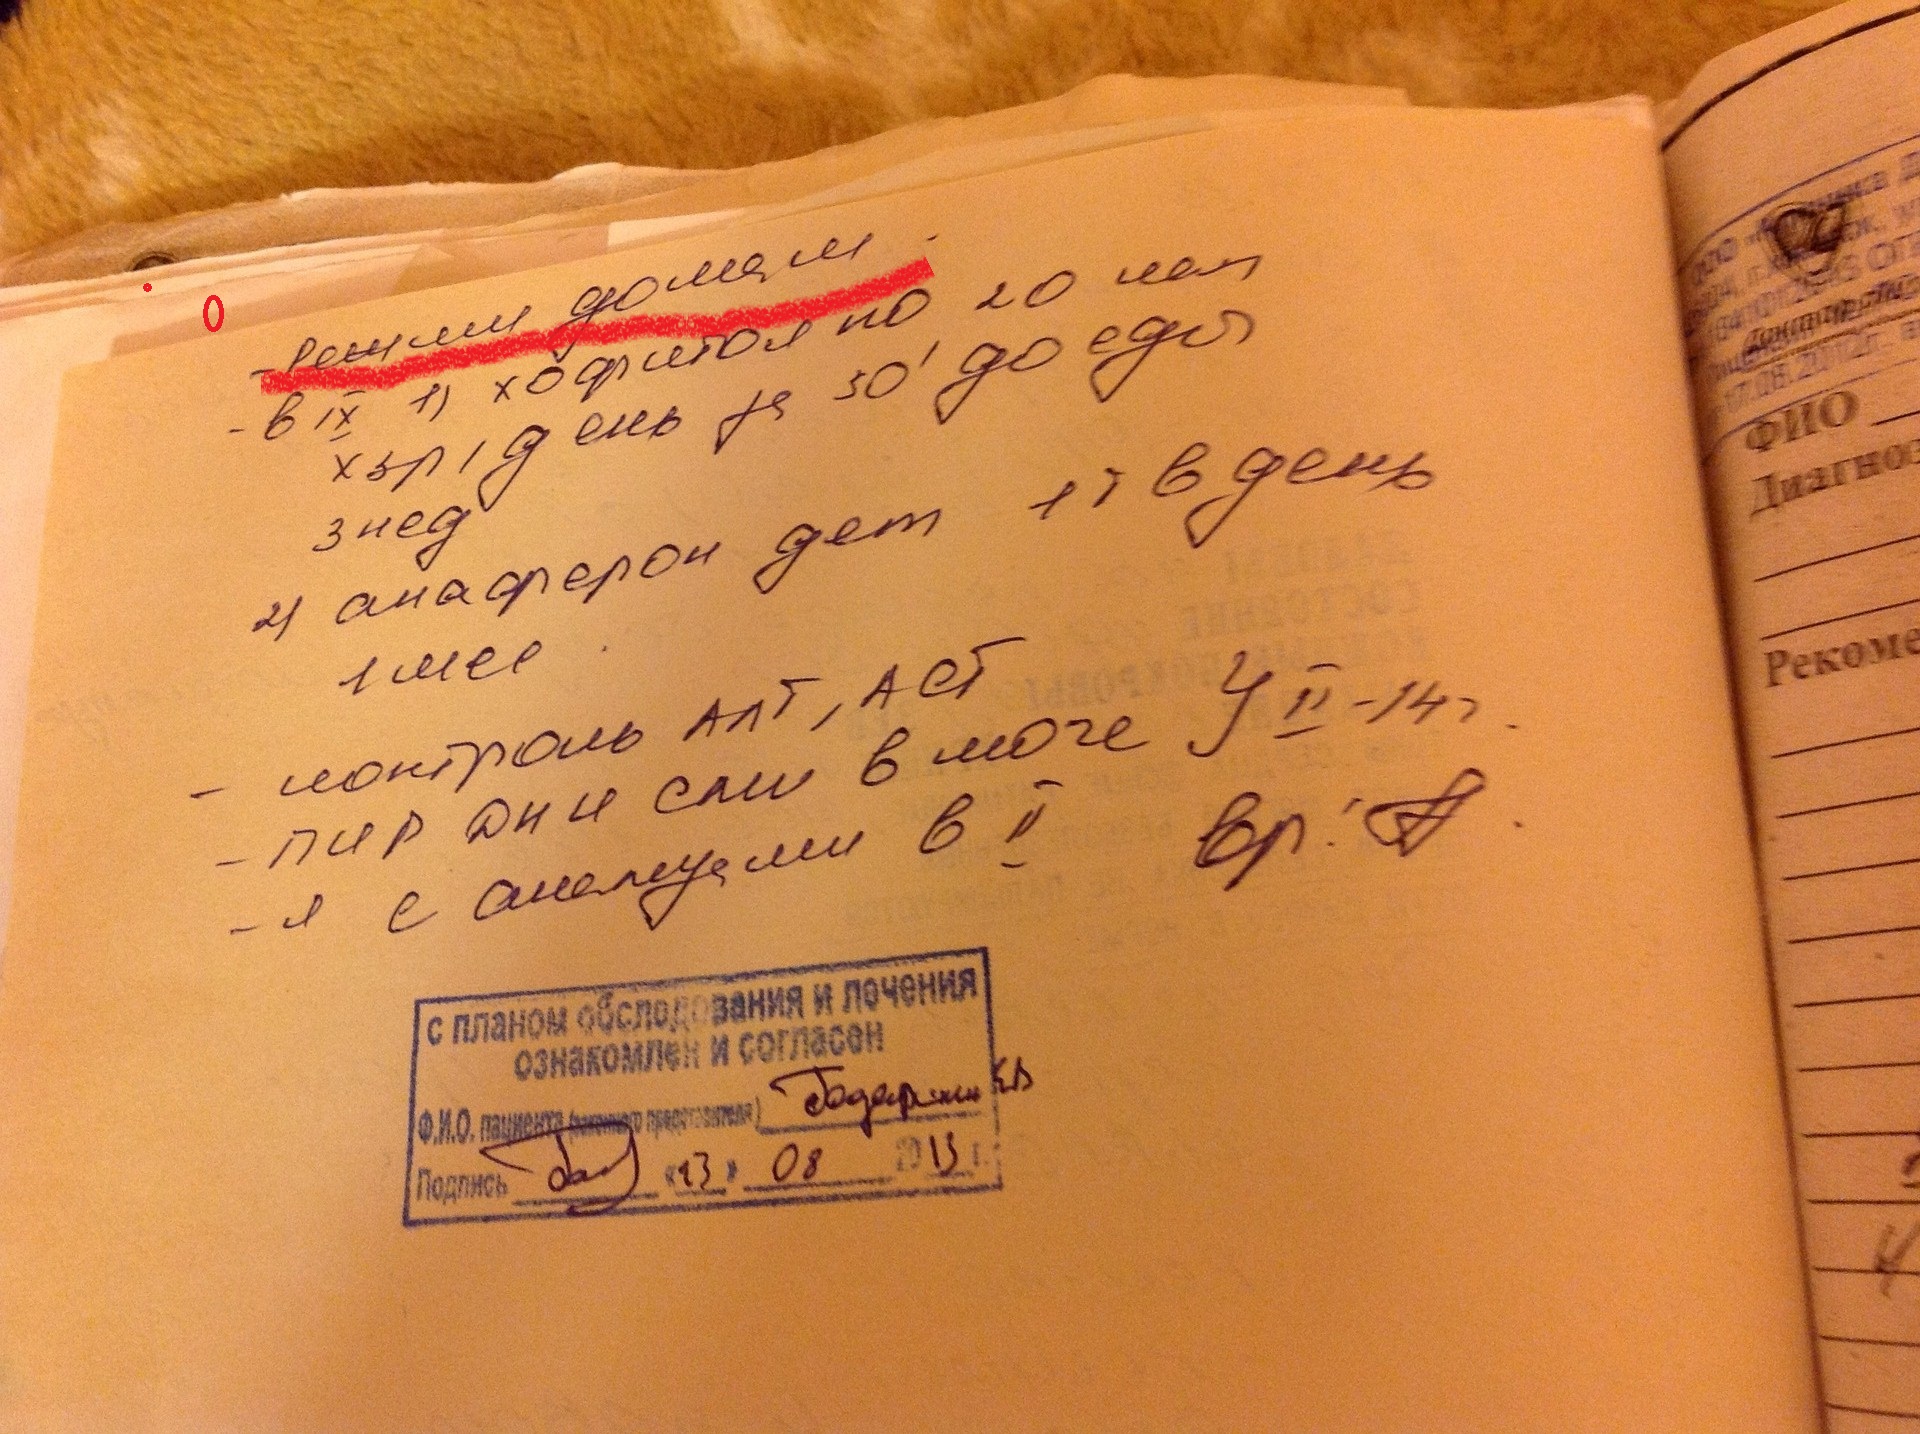 0
- Режим домаш.
- в IX 1) хофитол по 20 кап
х 3 р / день за 30' до еды
3 нед
2) анаферон дет 1т в день
1 мес.
- контроль АЛТ, АСТ
- ПЦР ДНК CMV в моче } II - 14г.
- Я с анализами в II вр:
с планом обследования и лечения
ознакомлен и согласен
Ф.И.О. пациента (законного представителя)
Подпись «13» 08 2013 г.
ООО
17.08.2012г.
ФИО
Диагноз
Рекоме